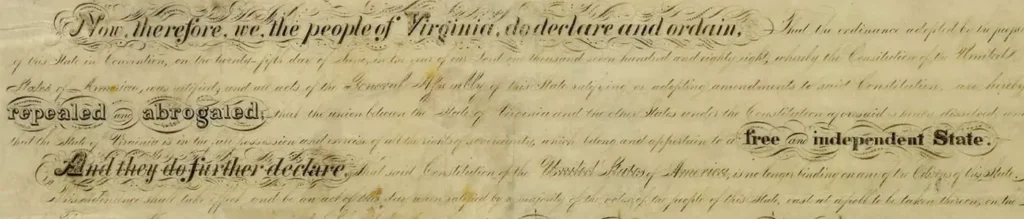 Now, therefore, we, the people of Virginia, do declare and ordain, That the ordinance adopted by the people
of this State in Convention, on the twenty-fifth day of June, in the year of our Lord one thousand seven hundred and eighty-eight, whereby the Constitution of the United
States of America, was ratified, and all acts of the General Assembly of this State ratifying or adopting amendments to said Constitution, are hereby
repealed and abrogated; that the union between the State of Virginia and the other States under the Constitution aforesaid is hereby dissolved, and
that the State of Virginia is in the full possession and exercise of all the rights of sovereignty, which belong and appertain to a free and independent State.
And they do further declare, that said Constitution of the United States of America, is no longer binding on any of the Citizens of this State.
This ordinance shall take effect and be an act of this day, when ratified by a majority of the votes of the people of this State, cast at a poll to be taken thereon, on the